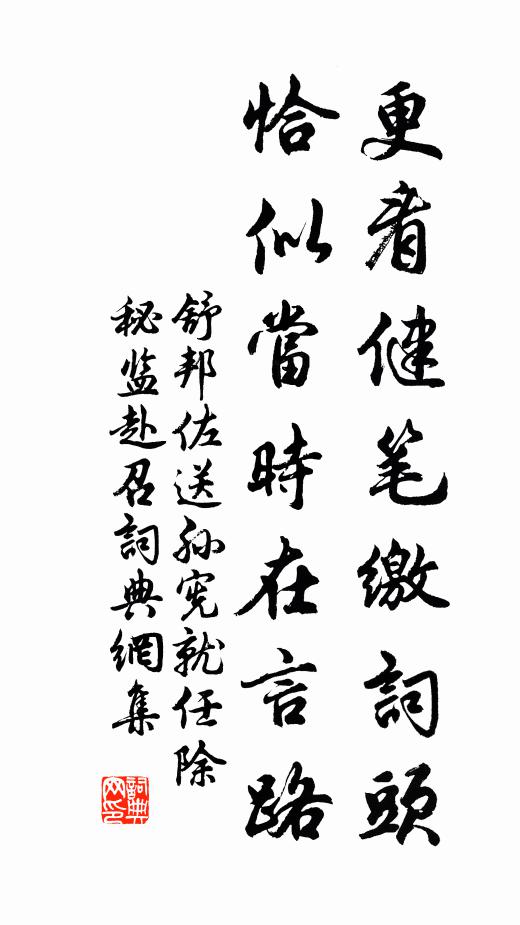 更看健笔缴詞頭
恰似當時在言路
舒邦佐送孙宪就任除
秘监赴召詞典網集
詞典网印